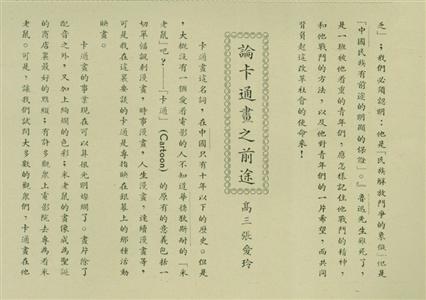 乏」;我們必須認明:他是「民族解放鬥爭的象徵,他是
「中國民族有前途的明顯的保證」。』魯迅先生雖死了,
是一班被他看重的青年們,應怎樣記住他戰鬥的精神,
和他戰鬥的方法,以及他對青年們的一片希望,而共同
背負起這改革社會的使命來!
論卡通畫之前途
高三 張愛玲
卡通畫這名詞,在中國只有十年以下的歷史。但是
,大概沒有一個愛看電影的人不知道華德狄斯耐的「米
老鼠」吧?——「卡通」(Cartoon) 的原有的意義包括一
切單幅諷刺漫畫,時事漫畫,人生漫畫,連續漫畫等,
可是我在這裏要談的卡通是專指映在銀幕上的那種活動
映畫。
卡通畫的事業現在可以算很光明燦爛了。畫片除了
配音之外,又加上絢爛的色彩;米老鼠的畫像成為聖誕
的商店裏最好的點綴;有許多觀眾上電影院去專為看米
老鼠。可是,讓我們試問大多數的觀眾們,卡通畫在他